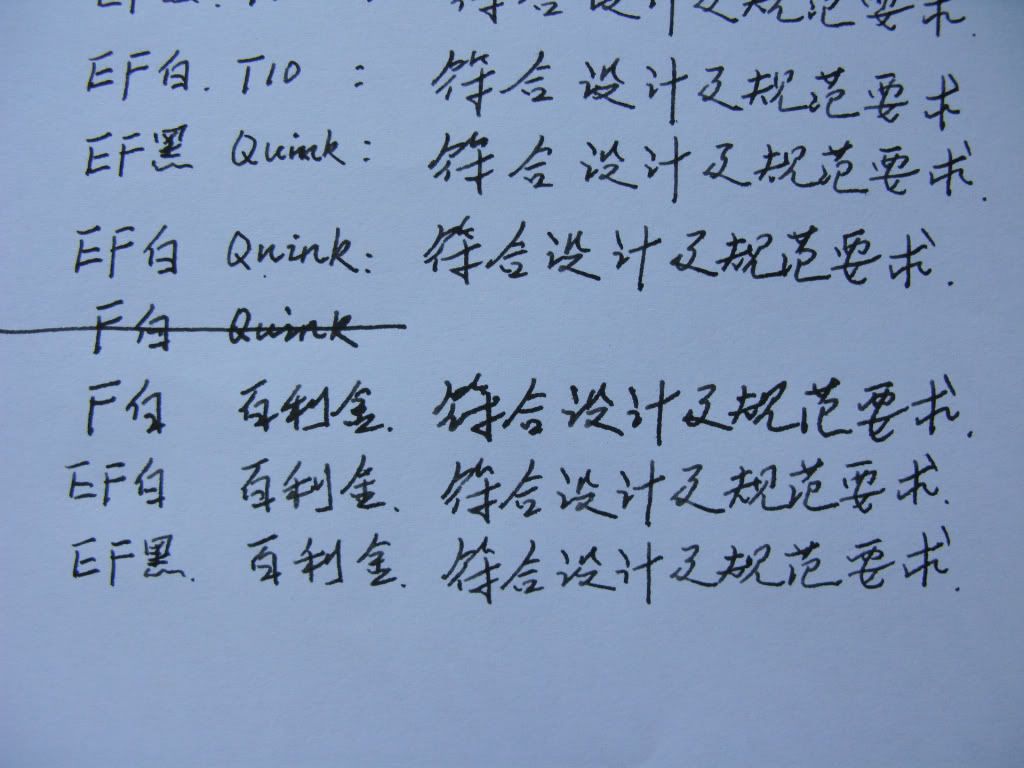 符合设计及规范要求.
EF白. T10 : 符合设计及规范要求
EF黑 Quink: 符合设计及规范要求.
EF白 Quink: 符合设计及规范要求.
F白 Quink
F白 百利金. 符合设计及规范要求.
EF白 百利金. 符合设计及规范要求.
EF黑. 百利金. 符合设计及规范要求.